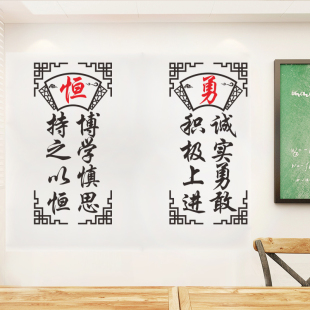 恒
博学慎思
持之以恒
勇
诚实勇敢
积极上进